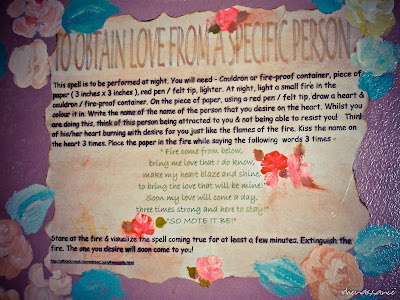 TO OBTAIN LOVE FROM A SPECIFIC PERSON
This spell is to be performed at night. You will need - Cauldron or fire-proof container, piece of
paper ( 3 inches x 3 inches ), red pen / felt tip, lighter. At night, light a small fire in the
cauldron / fire-proof container. On the piece of paper, using a red pen / felt tip, draw a heart &
colour it in. Write the name of the name of the person that you desire on the heart. Whilst you
are doing this, think of this person being attracted to you & not being able to resist you! Think
of his/her heart burning with desire for you just like the flames of the fire. Kiss the name on
the heart 3 times. Place the paper in the fire while saying the following words 3 times -
" Fire come from below,
bring me love that I do know,
make my heart blaze and shine,
to bring the love that will be mine!
Soon my love will come a day,
three times strong and here to stay!"
"SO MOTE IT BE!"
Stare at the fire & visualize the spell coming true for at least a few minutes. Extinguish the
fire. The one you desire will soon come to you!